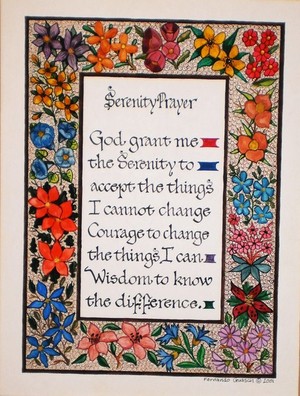 Serenity Prayer
God, grant me
the Serenity to
accept the things
I cannot change
Courage to change
the things I can.
Wisdom to know
the difference.
Fernando © 2001